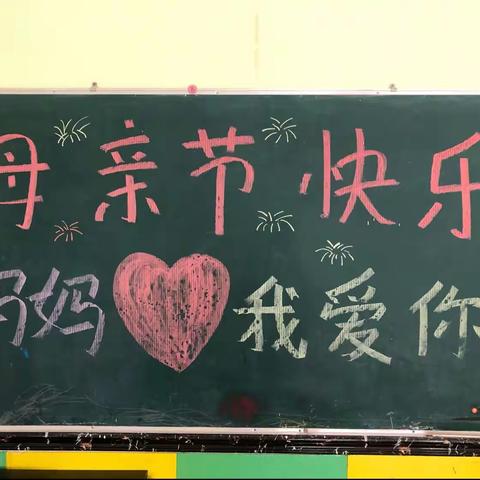 母亲节快乐
妈妈我爱你